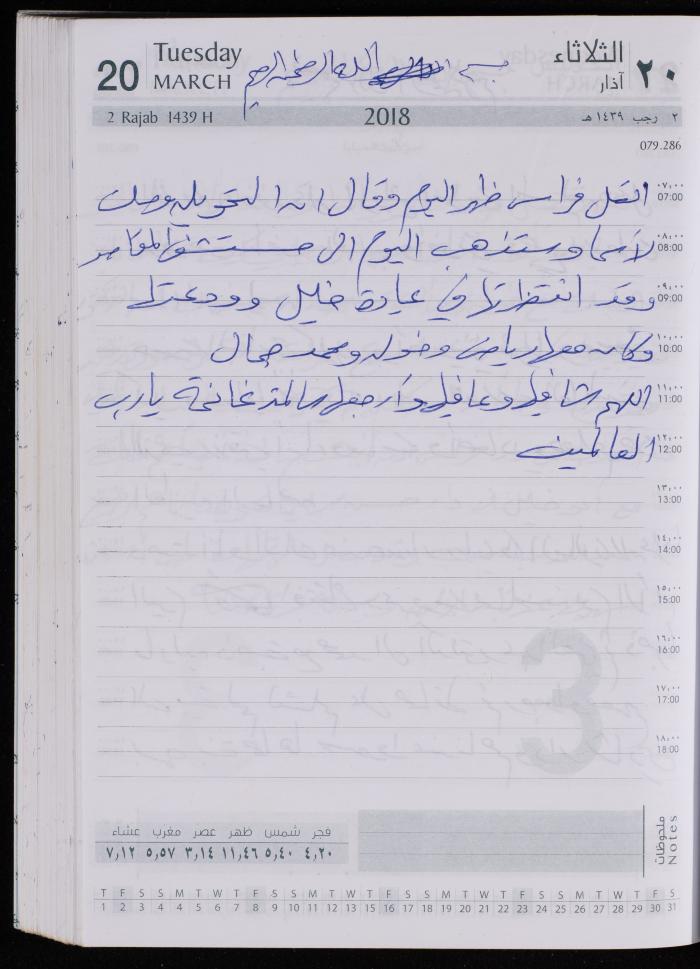 20 Tuesday MARCH
الثلاثاء ٢٠ آذار
بسم الله الرحمن الرحيم
2 Rajab 1439 H 2018 ٢ رجب ١٤٣٩ هـ
079.286
٠٧:٠٠ 07:00 اتصل فراس ظهر اليوم وقال ان التحويل وصل
٠٨:٠٠ 08:00 لاسما وستذهب اليوم الى مستشفى المقاصد
٠٩:٠٠ 09:00 وقد انتظرتها في عيادة خليل وودعتها
١٠:٠٠ 10:00 وكان معها رياض وخوله ومحمد جمال
١١:٠٠ 11:00 اللهم شافيها وعافيها وارجعها سالمة غانمة يا رب
١٢:٠٠ 12:00 العالمين
١٣:٠٠ 13:00
١٤:٠٠ 14:00
١٥:٠٠ 15:00
١٦:٠٠ 16:00
١٧:٠٠ 17:00
١٨:٠٠ 18:00
3
ملاحظات Notes
فجر شمس ظهر عصر مغرب عشاء
٤,٢٠ ٥,٤٠ ١١,٤٦ ٣,١٤ ٥,٥٧ ٧,١٢
T F S S M T W T F S S M T W T F S S M T W T F S S M T W T F S
1 2 3 4 5 6 7 8 9 10 11 12 13 14 15 16 17 18 19 20 21 22 23 24 25 26 27 28 29 30 31